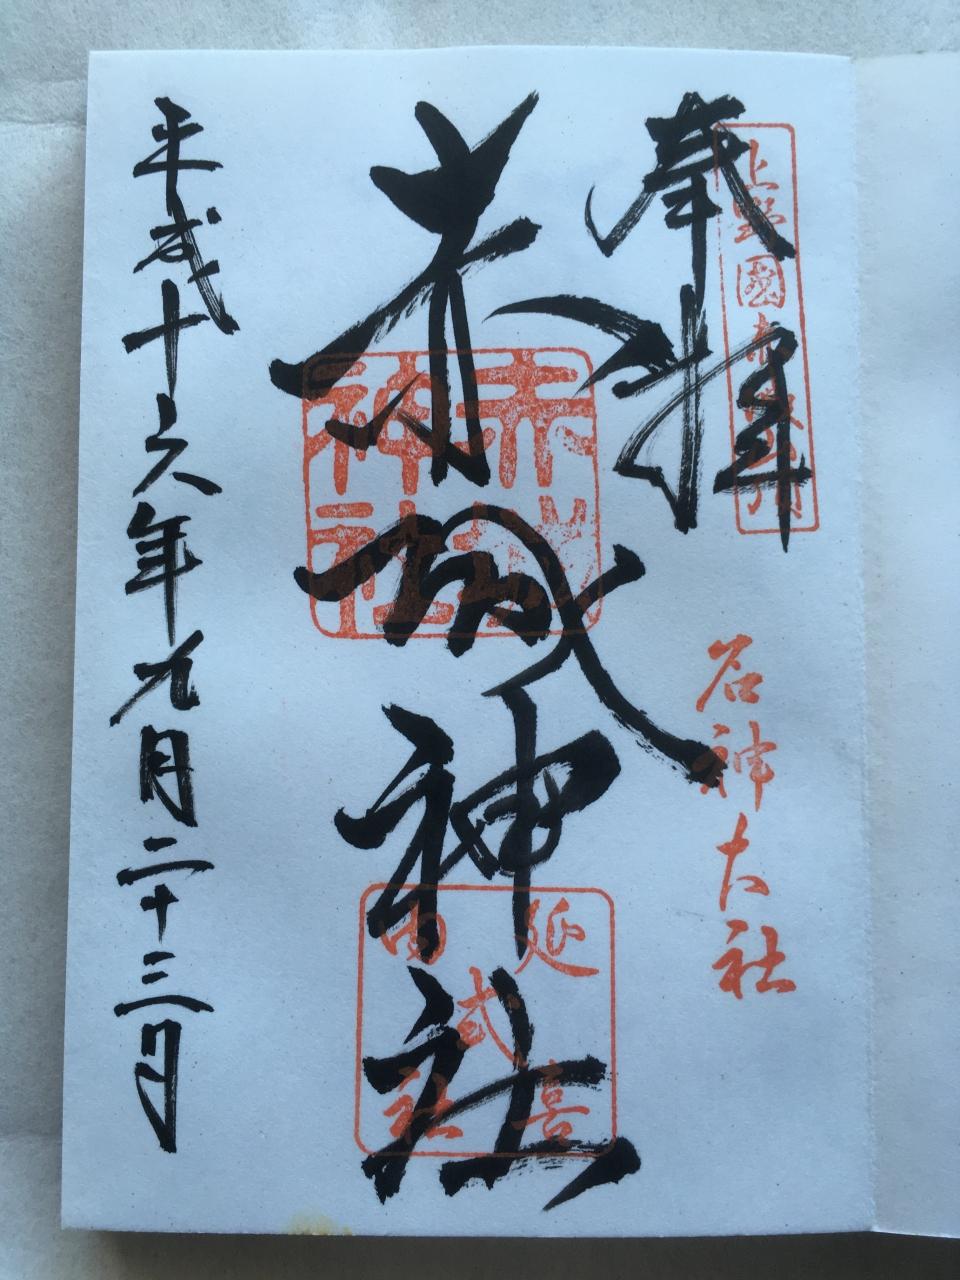 奉拝
上野國赤
名神大社
赤城神社
赤城神社
延喜式内社
平成十六年九月二十三日